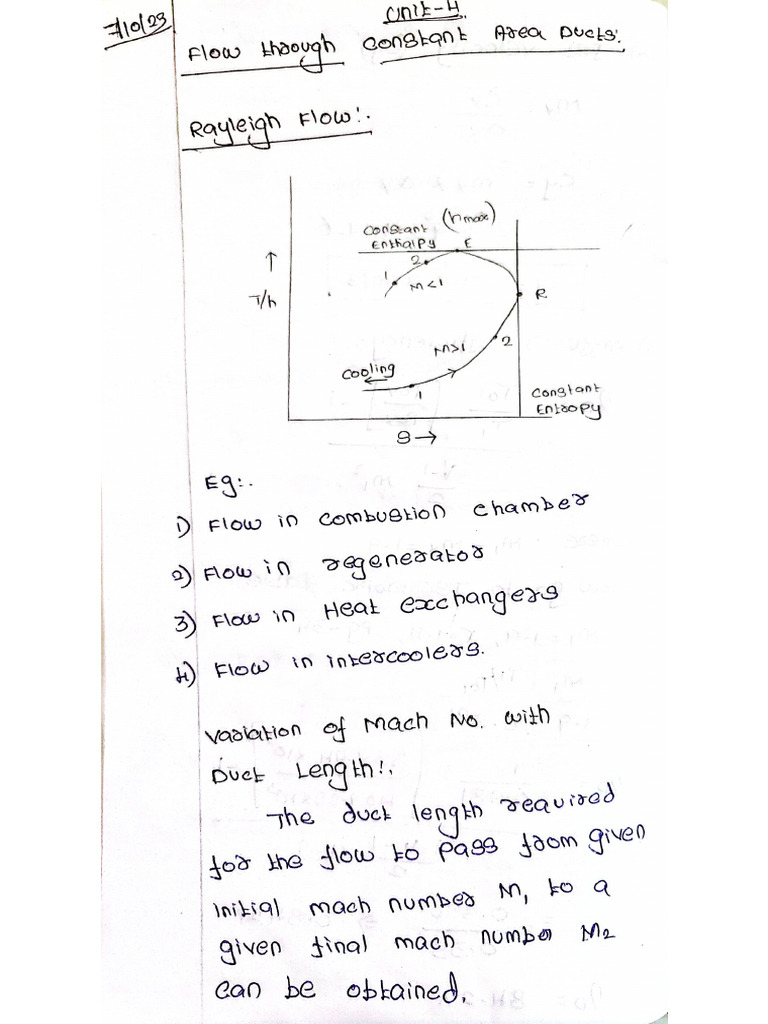 7/10/23
Unit-4
Flow through Constant Area Ducts:
Rayleigh Flow:.
Constant (hmax)
Enthalpy E
↑
T/h
1 2
M<1
R
M>1
2
cooling
←
1
Constant
Entropy
S→
Eg:.
1) Flow in combustion chamber
2) Flow in regenerator
3) Flow in Heat exchangers
4) Flow in intercoolers.
Variation of Mach No. with
Duct Length:.
The duct length required
for the flow to pass from given
initial mach number M1 to a
given final mach number M2
can be obtained.